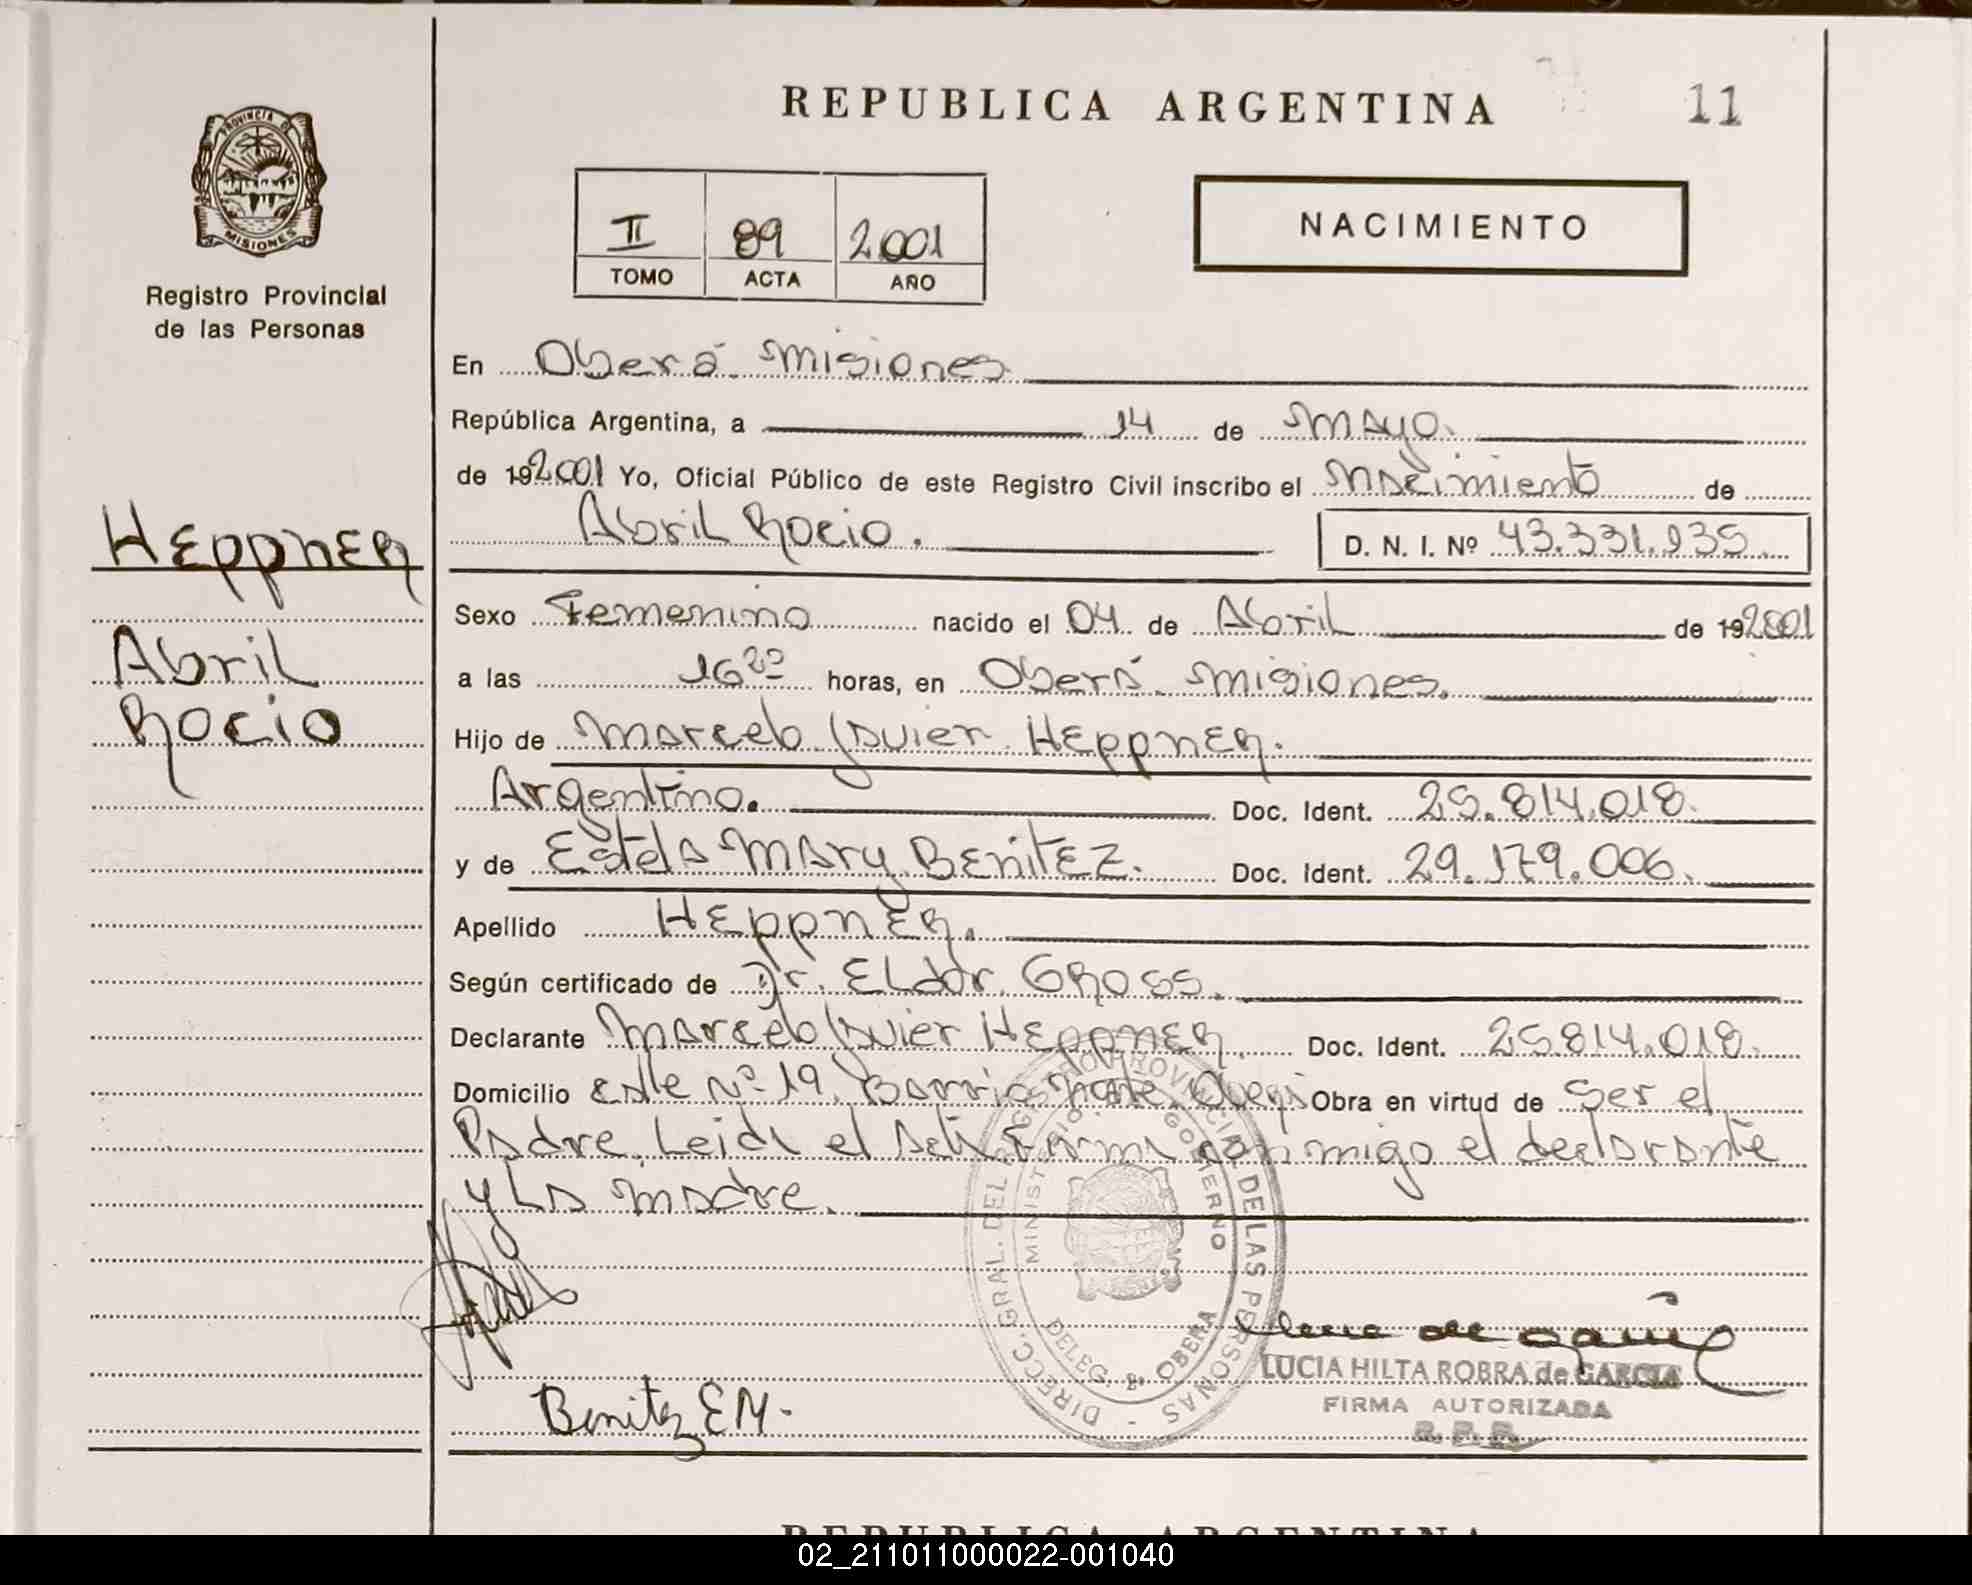 REPUBLICA ARGENTINA
11
PROVINCIA DE
MISIONES
Registro Provincial
de las Personas
II 89 2001
TOMO ACTA AÑO
NACIMIENTO
En Oberá Misiones
República Argentina, a 14 de Mayo.
de 192001 Yo, Oficial Público de este Registro Civil inscribo el Nacimiento de
Abril Rocio. D. N. I. Nº 43.331.935
Heppner
Abril
Rocio
Sexo Femenino nacido el 04 de Abril de 192001
a las 16 horas, en Oberá Misiones.
Hijo de Marcelo Javier Heppner.
Argentino. Doc. Ident. 25.814.018.
y de Estela Mary Benitez. Doc. Ident. 29.179.006.
Apellido Heppner.
Según certificado de Dr. Eldor Gross.
Declarante Marcelo Javier Heppner. Doc. Ident. 25.814.018.
Domicilio calle Nº 19. Barrio Norte. Obra en virtud de ser el
Padre. Leida el acta firma conmigo el declarante
y la madre.
DIRECC. GRAL. DEL REGISTRO PROVINCIAL DE LAS PERSONAS
MINISTERIO GOBIERNO
DELEG. OBERA
Benitez E M.
LUCIA HILTA ROBRA de GARCIA
FIRMA AUTORIZADA
REPUBLICA ARGENTINA
02_211011000022-001040